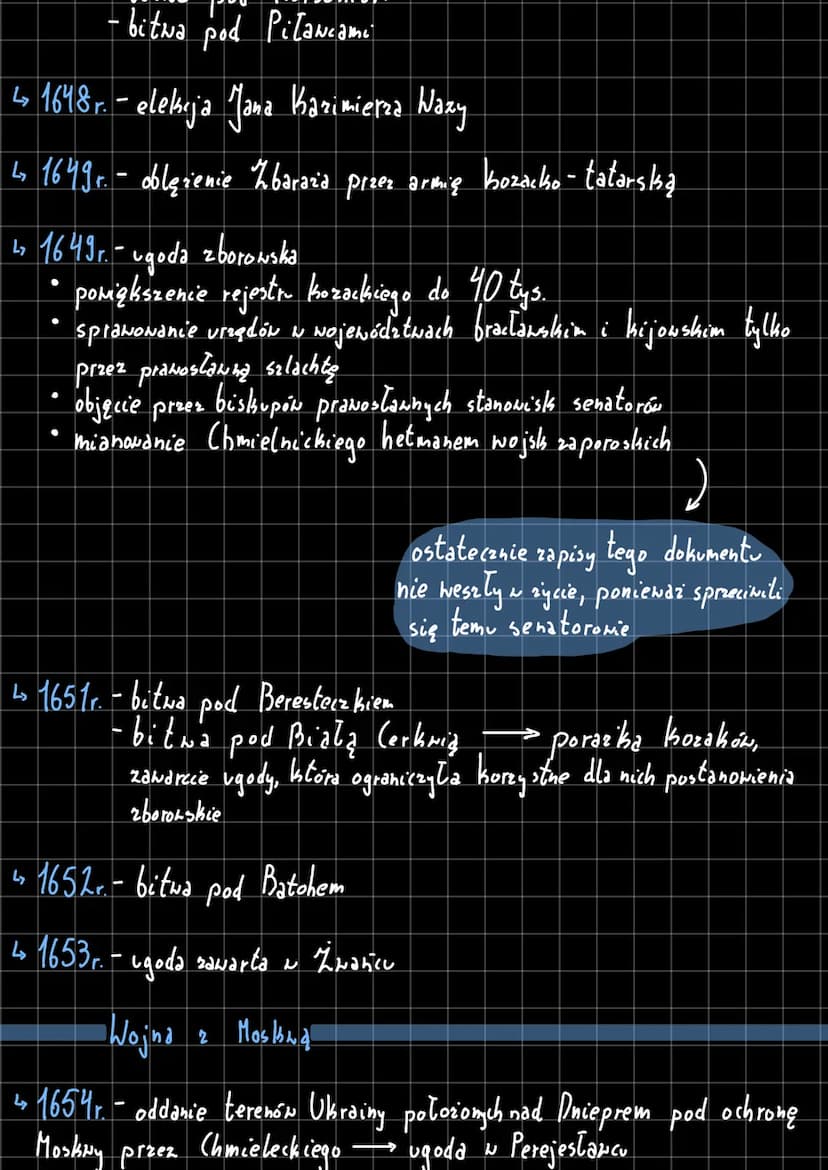 - bitwa pod Piławcami
↳ 1648r. - elekcja Jana Kazimierza Wazy
↳ 1649r. - oblężenie Zbaraża przez armię kozacko-tatarską
↳ 1649r. - ugoda zborowska
• powiększenie rejestru kozackiego do 40 tys.
• sprawowanie urzędów w województwach bracławskim i kijowskim tylko
przez prawosławną szlachtę
• objęcie przez biskupów prawosławnych stanowisk senatorów
• mianowanie Chmielnickiego hetmanem wojsk zaporoskich
ostatecznie zapisy tego dokumentu
nie weszły w życie, ponieważ sprzeciwili
się temu senatorowie
↳ 1651r. - bitwa pod Beresteczkiem
- bitwa pod Białą Cerkwią → porażka kozaków,
zawarcie ugody, która ograniczyła korzystne dla nich postanowienia
zborowskie
↳ 1652r. - bitwa pod Batohem
↳ 1653r. - ugoda zawarta w Żwańcu
Wojna z Moskwą
↳ 1654r. - oddanie terenów Ukrainy położonych nad Dnieprem pod ochronę
Moskwy przez Chmieleckiego → ugoda w Perejesławcu